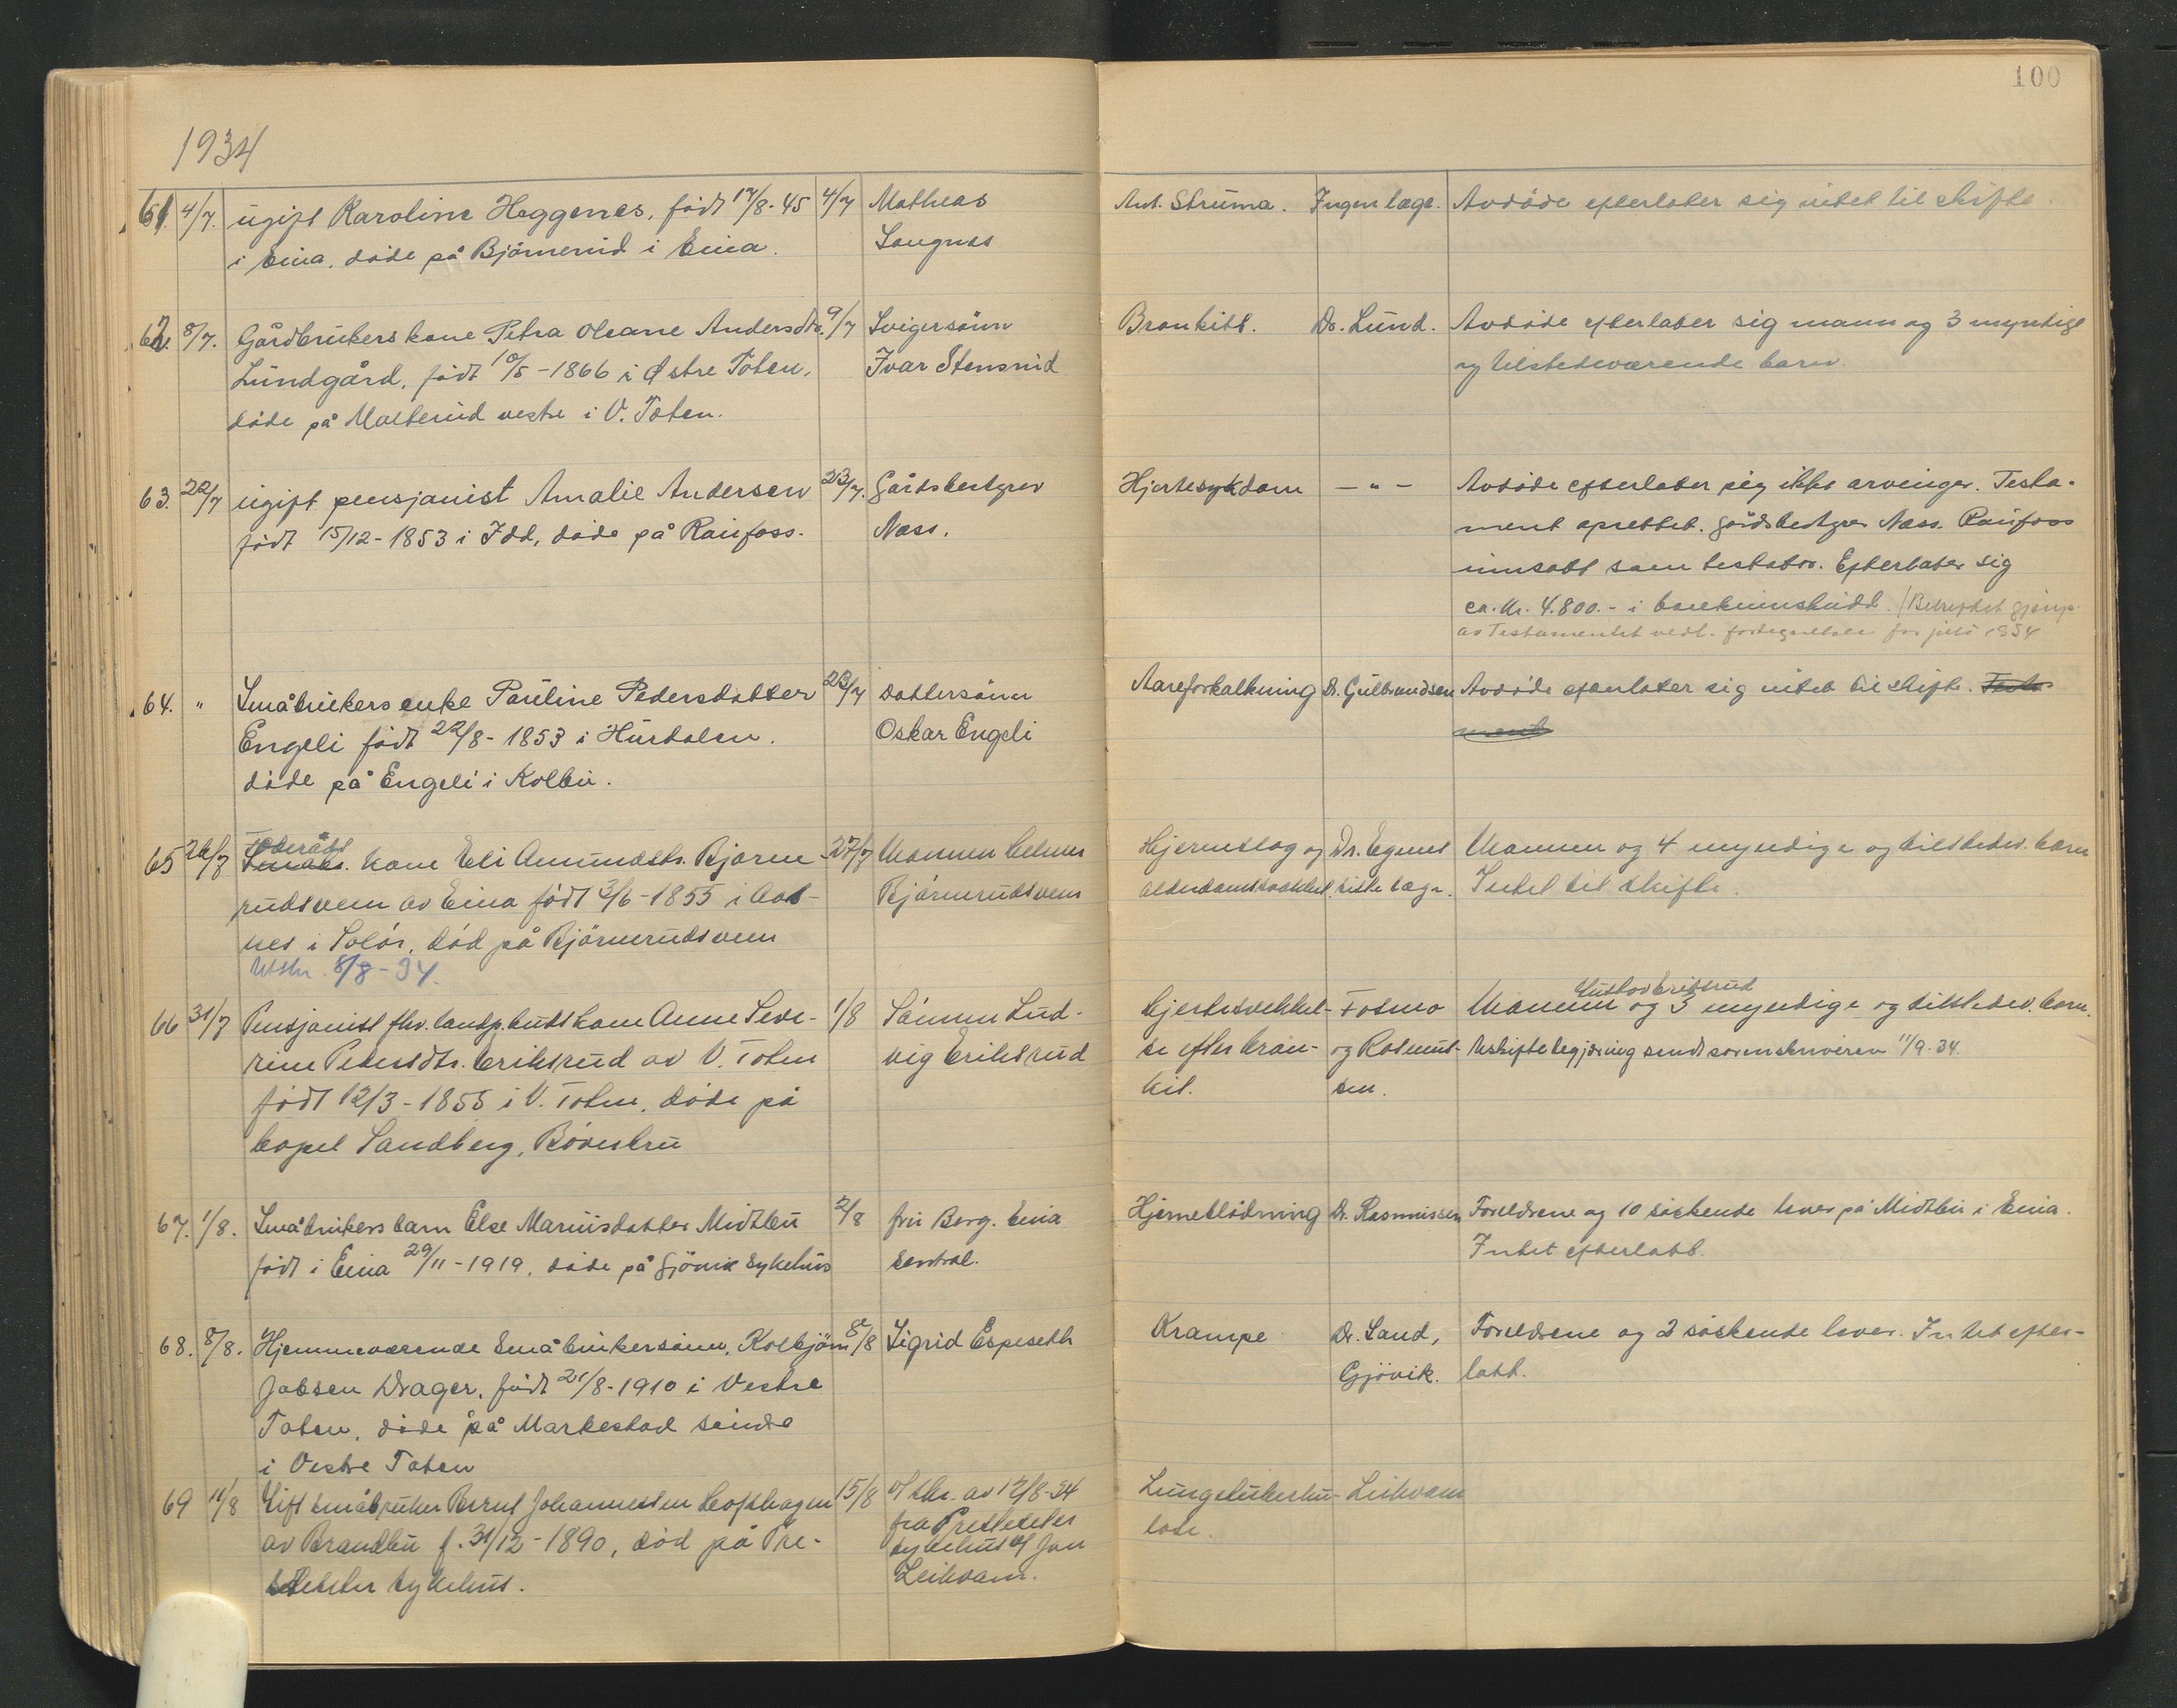 100
1934
61. 4/7. ugift Karoline Heggenes, født 17/8-45 4/7 Matheas Ant. Struma. Ingen læge. Avdøde efterlater sig intet til skifte.
i Eina, døde på Bjørnerud i Eina. Langnes
62. 8/7. Gårdbrukers kone Petra Oleane Andersdtr. 9/7 Svigersønn Bronkitt. Dr. Lund. Avdøde efterlater sig mann og 3 myndige
Lundgård, født 10/5-1866 i Østre Toten, Ivar Stensrud og tilstedeværende barn.
døde på Molterud vestre i V. Toten.
63. 22/7 ugift pensjonist Amalie Andersen 23/7. Gårdsbestyrer Hjertesykdom —"— Avdøde efterlater sig ikke arvinger. Testa-
født 15/12-1853 i Idd, døde på Raufoss. Næss. ment oprettet. Gårdsbestyrer Næss. Raufoss
innsatt som testator. Efterlater sig
ca. kr. 4.800.- i bankinnskudd. (Bekreftet gjenp.
av Testamentet vedl. fortegnelsen for juli 1934
64. " Småbrukers enke Pauline Pedersdatter 23/7 Dattersønn Aareforkalkning Dr. Gulbrandsen Avdøde efterlater sig intet til skifte. Testa-
Engeli født 22/8-1853 i Hurdalen. Oskar Engeli ment
døde på Engeli i Kolbu.
Føderåds
65 26/7 kone Eli Amundsdtr. Bjørne- 27/7 Mannen Helmer Hjerneslag og Dr. Egnes Mannen og 4 myndige og tilstedev. barn
rudsveen av Eina født 3/6-1855 i Aas- Bjørnerudsveen alderdomssvakhet. siste læge. Intet til skifte.
nes i Solør, død på Bjørnerudsveen
Utskr. 8/8-34.
Gustav Eriksrud
66 31/7 Pensjonist fhv. landp.buds kone Anne Seve- 1/8 Sønnen Lud- Hjertesvekkel- Fosmo Mannen og 3 myndige og tilstedev. barn.
rine Pedersdtr. Eriksrud av V. Toten vig Eriksrud se efter bron- og Rasmus- Uskiftebegjæring sendt sorenskriveren 11/9-34.
født 12/3-1855 i V. Toten, døde på kit. sen.
Sandberg, Bøverbru
67. 1/8. Småbrukers barn Else Mariusdatter Midtbu 2/8 fru Berg. Eina Hjerneblødning Dr. Rasmussen Foreldrene og 10 søskende lever på Midtbu i Eina.
født i Eina 29/11-1919, døde på Gjøvik sykehus sentral. Intet efterlatt.
68. 8/8. Hjemmeværende småbrukersønn, Kolbjørn 8/8 Sigrid Espeseth Krampe Dr. Sand, Foreldrene og 2 søskende lever. Intet efter-
Jobsen Drager, født 21/8-1910 i Vestre Gjøvik. latt.
Toten, døde på Markestad søndre
i Vestre Toten
69 11/8 Gift småbruker Bernt Johannessen Hofshagen 15/8 Utskr. av 12/8-34 Lungetuberku- Leikvam
av Brandbu f. 31/12-1890, død på Pre- fra Presteseter lose.
steseter sykehus. sykehus v/ Jon
Leikvam.